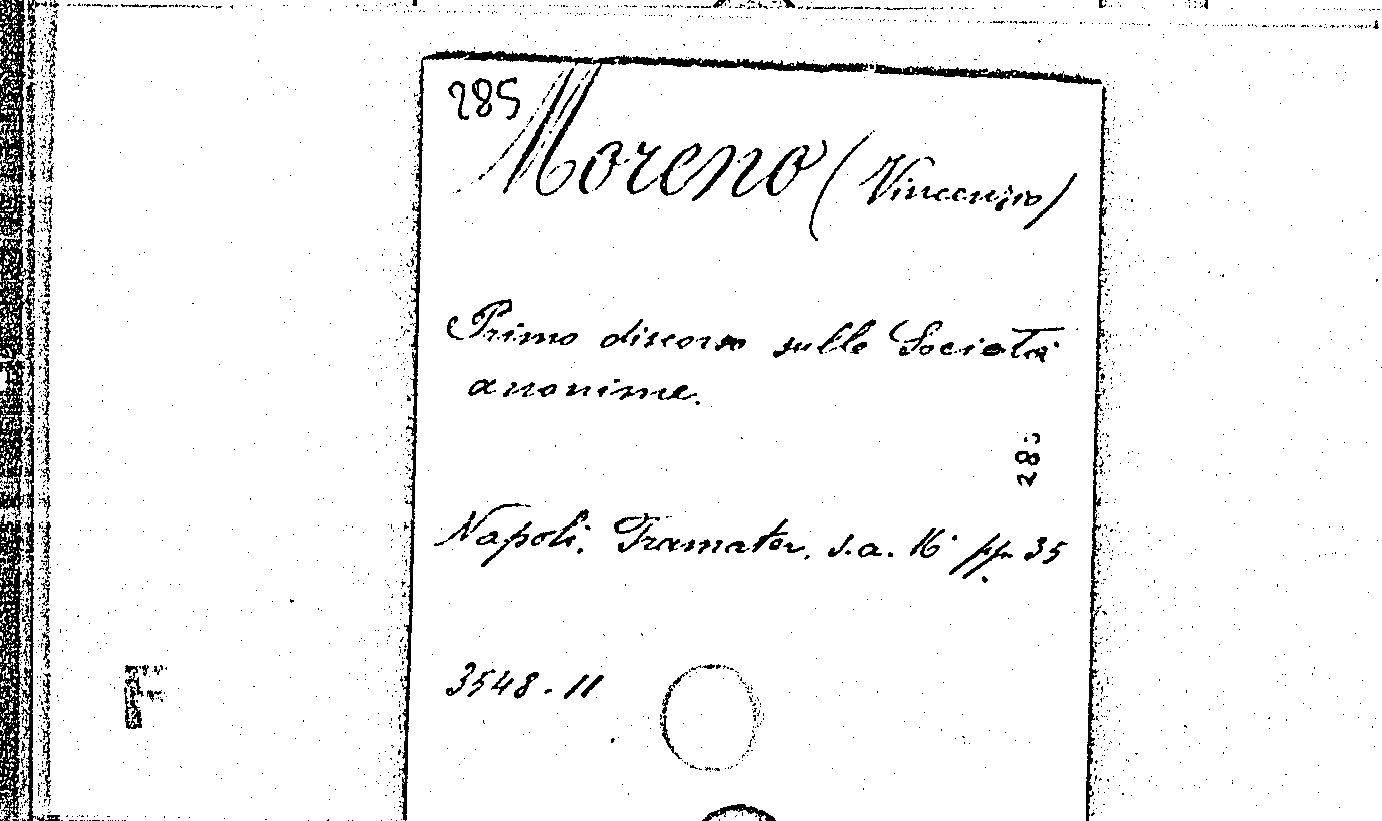 285
Moreno (Vincenzo)
Primo discorso sulle Società
anonime.
285
Napoli. Tramater. s.a. 16° pp. 35
3548-11
F